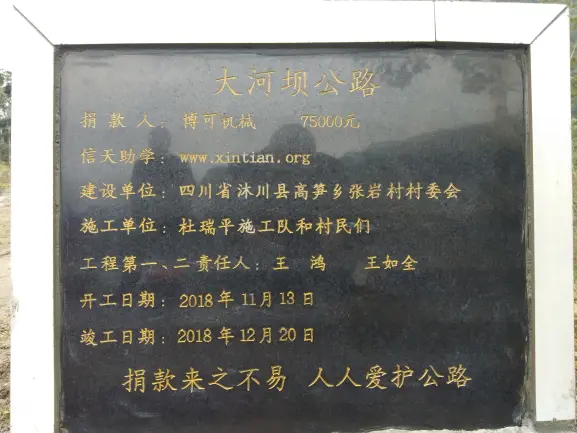 大河坝公路
捐款人：博可机械 75000元
信天助学：www.xintian.org
建设单位：四川省沐川县高笋乡张岩村村委会
施工单位：杜瑞平施工队和村民们
工程第一、二责任人：王 鸿 王如全
开工日期：2018年11月13日
竣工日期：2018年12月20日
捐款来之不易 人人爱护公路